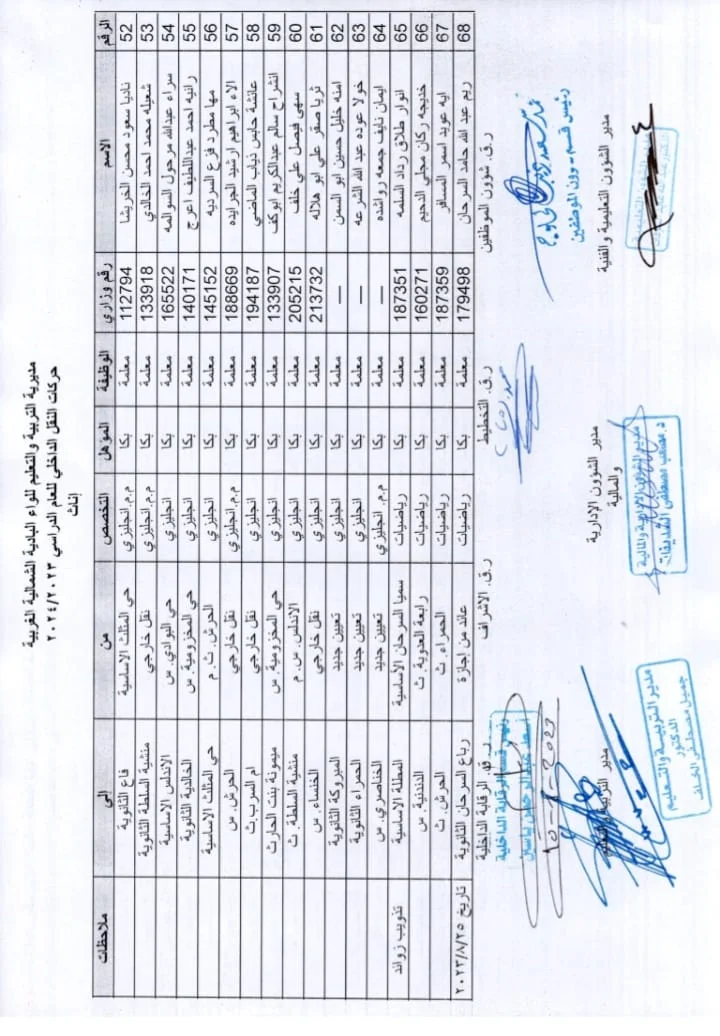 مديرية التربية والتعليم للواء البادية الشمالية الغربية
حركات النقل الداخلي للعام الدراسي ٢٠٢٤/٢٠٢٣
إناث
الرقم الاسم رقم وزاري الوظيفة المؤهل التخصص من إلى ملاحظات
52 ناديا سعود محسن الخريشا 112794 معلمة بكا م.م.انجليزي حي المثلث الاساسية فاع الثانوية
53 شعيله محمد احمد الخالدي 133918 معلمة بكا م.م.انجليزي نقل خارجي منشية السلطة الثانوية
54 سراء عبدالله مرحول السوالمه 165522 معلمة بكا انجليزي حي البوادي. س الاندلس الاساسية
55 رانيه احمد عبداللطيف اعرج 140171 معلمة بكا انجليزي حي المخزومية. س الخالدية الثانوية
56 مها مطرد فزع السرديه 145152 معلمة بكا انجليزي الحرش. ث. م حي المثلث الاساسية
57 الاء ابراهيم ارشيد الجرايده 188669 معلمة بكا م.م.انجليزي نقل خارجي الحرش. س
58 عائشة حابس ذياب الماضي 194187 معلمة بكا انجليزي نقل خارجي ام السرب.ث
59 انشراح سالم عبدالكريم ابوكف 133907 معلمة بكا انجليزي حي المخزومية. س ميمونة بنت الحارث
60 سهى فيصل علي خلف 205215 معلمة بكا انجليزي الاندلس. س. م منشية السلطة. ث
61 ثريا صقر علي ابو هلاله 213732 معلمة بكا انجليزي نقل خارجي الخنساء. س
62 امنه خليل حسين ابو السمن — معلمة بكا انجليزي تعيين جديد المبروكة الثانوية
63 خولا عوده عبد الله الشرعه — معلمة بكا انجليزي تعيين جديد الحمراء الثانوية
64 ايمان نايف جمعه رواشده — معلمة بكا م.م. انجليزي تعيين جديد الخناصري. س
65 انوار طلاق رداد السلمه 187351 معلمة بكا رياضيات سميا السرحان الأساسية المطلة الاساسية تذويب زوائد
66 خديجه ركان مجلي الدحيم 160271 معلمة بكا رياضيات رابعة العدوية. ث الدندنية. س
67 ايه عويد اسمر المسافر 187359 معلمة بكا رياضيات الحمراء. ث الحرش. ث
68 ريم عبد الله حامد السرحان 179498 معلمة بكا رياضيات عائد من اجازة رباع السرحان الثانوية تاريخ ٢٠٢٣/٨/٢٥
ر.ق. شؤون الموظفين ر.ق. التخطيط ر.ق. الاشراف ر.ق. الرقابة الداخلية
مدير الشؤون التعليمية و الفنية
مدير الشؤون الإدارية
والمالية
مدير الشؤون الإدارية والمالية
مدير التربية والتعليم
الدكتور